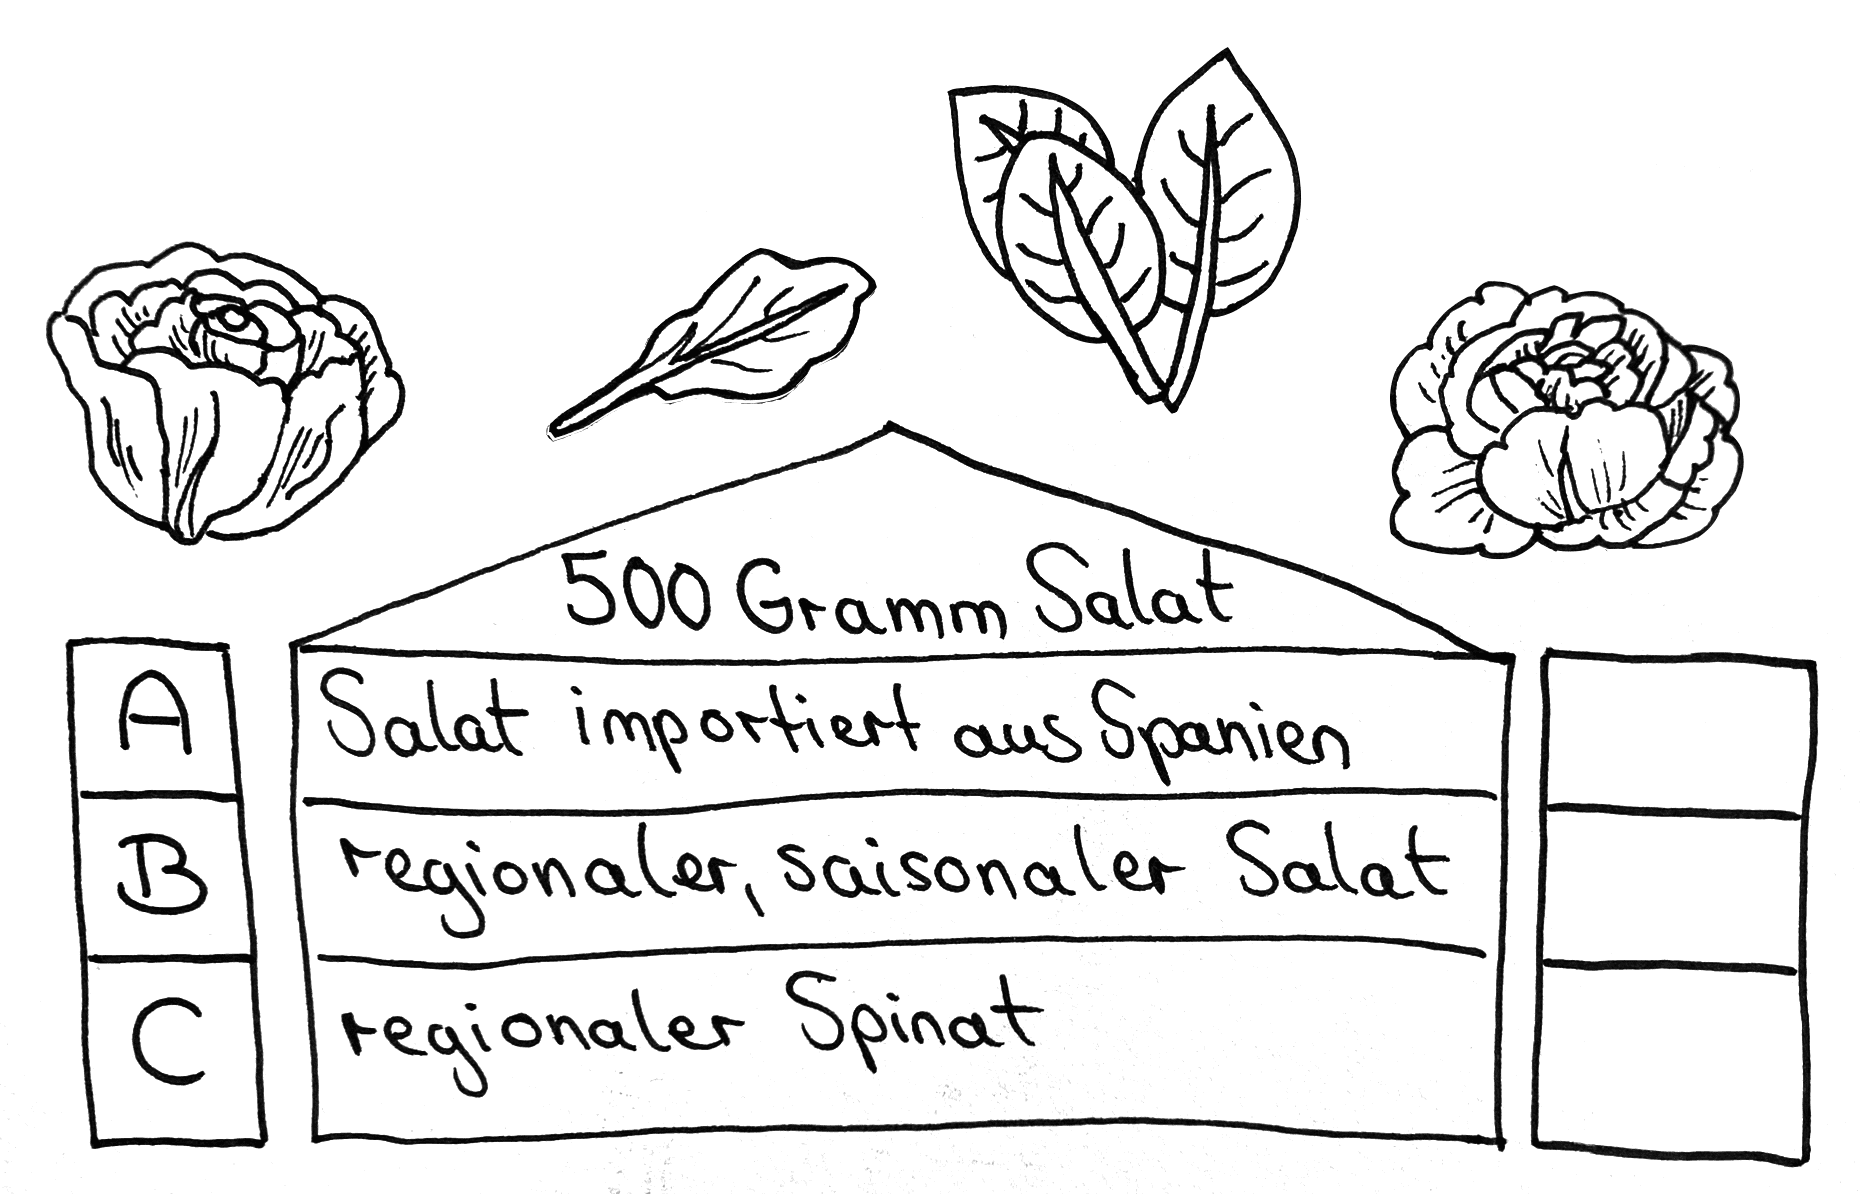 500 Gramm Salat
A Salat importiert aus Spanien
B regionaler, saisonaler Salat
C regionaler Spinat